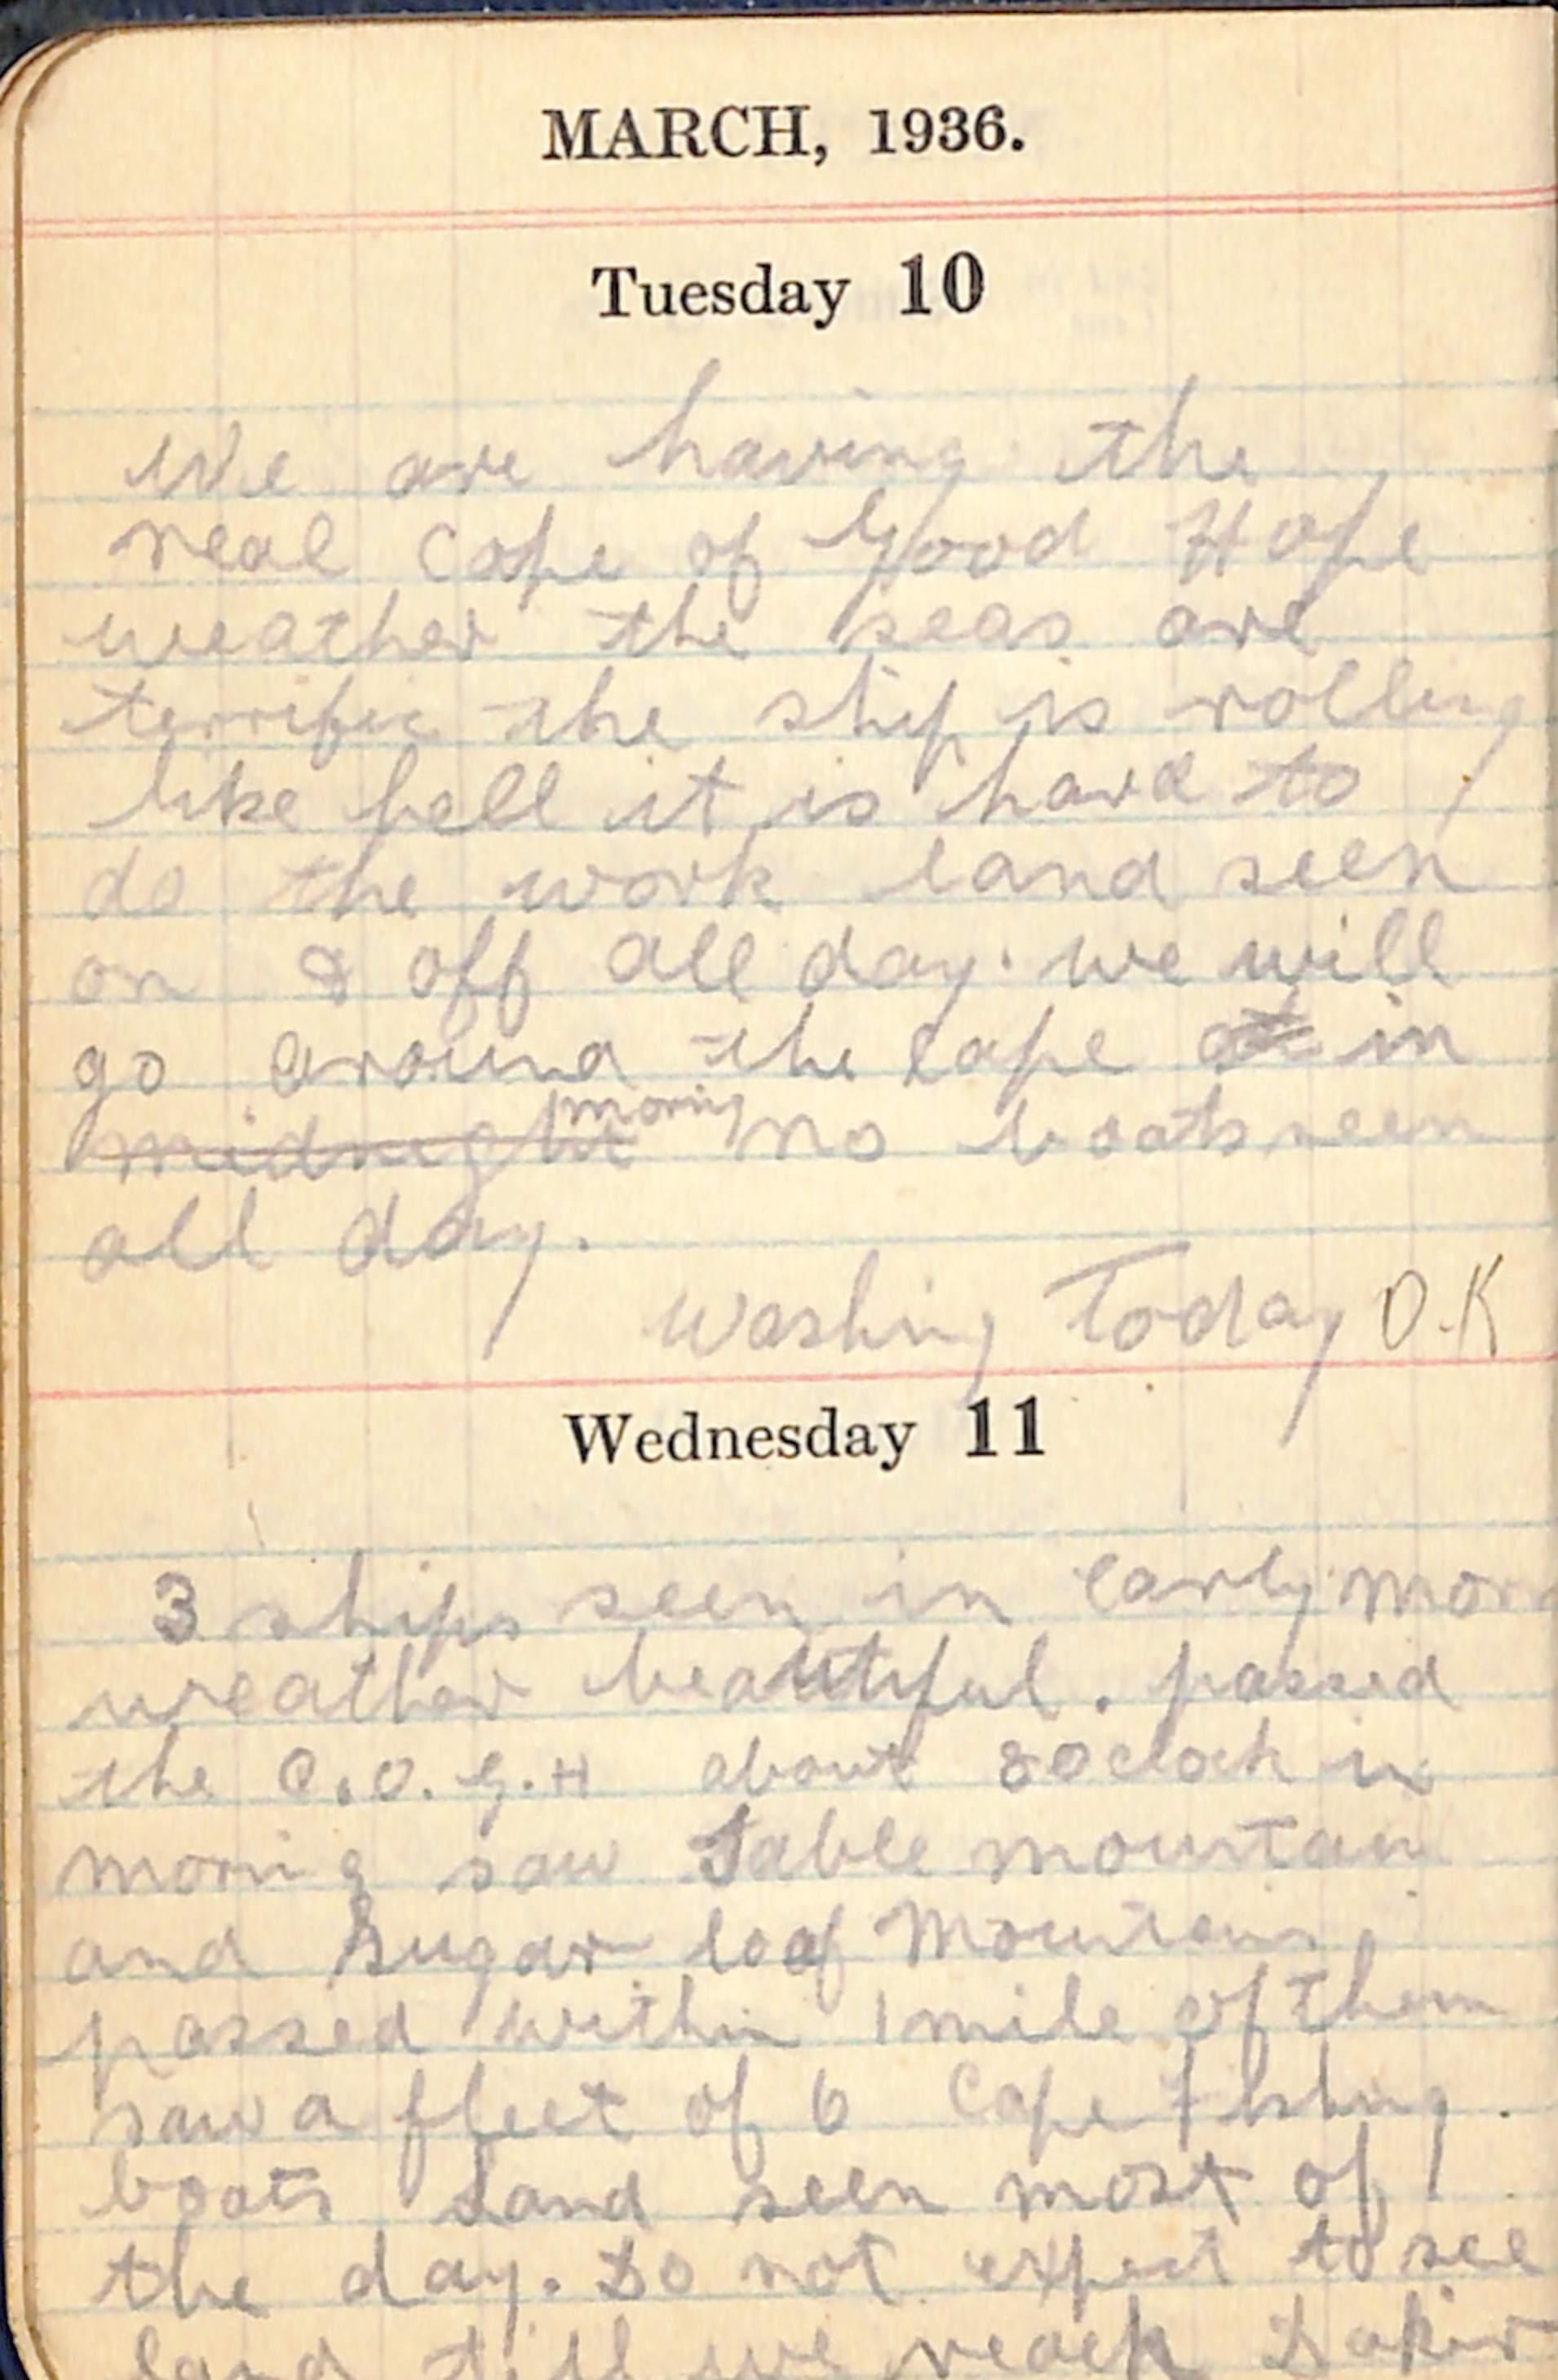 MARCH, 1936.
Tuesday 10
We are having the
real Cape of Good Hope
weather the seas are
terrific the ship is rolling
like hell it is hard to
do the work land seen
on & off all day. we will
go around the cape at in
midnight morning no boats seen
all day.
Washing Today O.K
Wednesday 11
3 ships seen in early morn
weather beautiful. passed
the C.O.G.H about 8 oclock in
morning saw Table mountain
and Sugar loaf Mountains
passed within 1 mile of them
saw a fleet of 6 Cape fishing
boats Land seen most of
the day. Do not expect to see
land till we reach Dakar